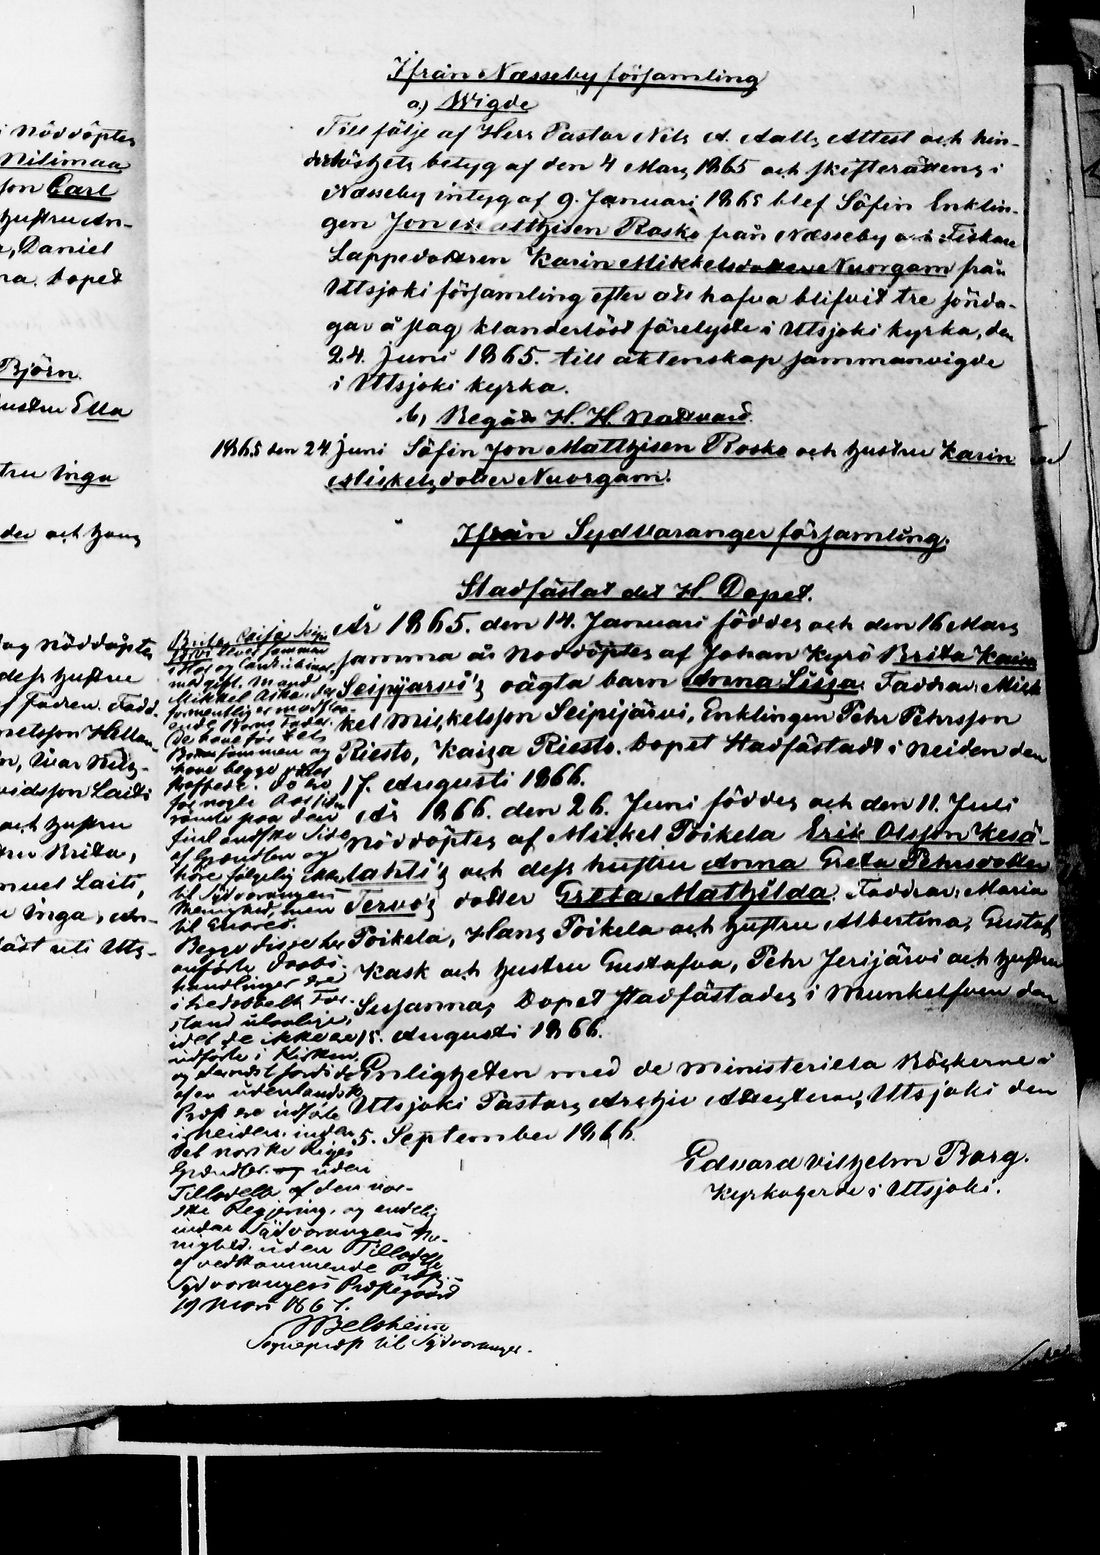 i nöddöptes
Nilimaa
son Carl
hustru An-
r, Daniel
na. Dopet
Björn.
hustru Ella
tru Inga
der och hans
dag nöddöptes
dess hustru
af Fadren. Fadd.
Nilsson Laiti
och hustru
tru Brita,
muel Laiti,
u Inga, An-
fäst uti Uts-
Ifrån Næsseby församling
a) Wigde
Till följe af Herr Pastor Nils A. Aalls Attest och hin-
derlöshets betyg af den 4 Mars 1865 och skifterättens i
Næsseby intyg af 9. Januari 1865 blef Söfin Enklin-
gen Jon Matthisen Rosko från Næsseby och Fiskare
Lappedottren Karin Mikkelsdotter Nuorgam från
Uttsjoki församling efter att hafva blifvit tre sönda-
gar å slag klanderlöst förelyste i Utsjoki kyrka, den
24. Juni 1865. till äktenskap sammanvigde
i Uttsjoki kyrka.
b, Begått H. H. Nattvard.
1865 den 24 Juni Söfin Jon Matthisen Rosko och hustru Karin
Mickelsdotter Nuorgam.
Ifrån Sydvaranger församling.
Stadfästat det H. Dopet.
År 1865. den 14. Januari föddes och den 16 Mars
samma år nöddöptes af Johan Kyrö Brita Kaisa
Seipijärvi's oägta barn Anna Liisa. Faddrar: Mick-
kel Mickelsson Seipijärvi, Enklingen Pehr Pehrsson
Riesto, Kaisa Riesto. Dopet stadfästadt i Neiden den
17. Augusti 1866.
År 1866. den 26. Juni föddes och den 11. Juli
nöddöptes af Mickel Poikela Erik Olsson Kesä-
lahti's och dess hustru Anna Greta Pehrsdotter
Tervo's dotter Greta Mathilda. Faddrar: Maria
Poikela, Hans Poikela och hustru Albertina, Gustaf
Kask och hustru Gustafva, Pehr Jerijärvi och hustru
Susanna, Dopet stadfästades i Munkelfven den
15. Augusti 1866.
Enligheten med de ministeriella Böckerne i
Utsjoki Pastors Archiv Attesterar, Utsjoki den
5. September 1866.
Edvard Vilhelm Borg.
Kyrkoherde i Uttsjoki.
Brita Caisa Seipi-
järvi lever sammen
med gift Mand
Mikkel
De have før
Barn sammen og
have begge
for nogle Aar siden
rømte paa den
finlandske Side
af Grændsen og
høre følgelig ikke
til Sydvarangers
Menighed, men
til Enares.
Begge disse her
anførte Daabs-
handlinger ere
i tredobbelt For-
stand ulovlige,
idet de ikke ere
udførte i Kirken,
og dernæst fordi de
af en udenlandsk
Præst ere udførte
i Neiden inden
det norske Riges
Grændser og uden
Tilladelse af den nor-
ske Regjering, og endelig
inden Sydvarangers Me-
nighed uden Tilladelse
af vedkommende Præst.
Sydvarangers Præstegaard
19 Mars 1867.
JBelsheim
Sognepræst til Sydvaranger.